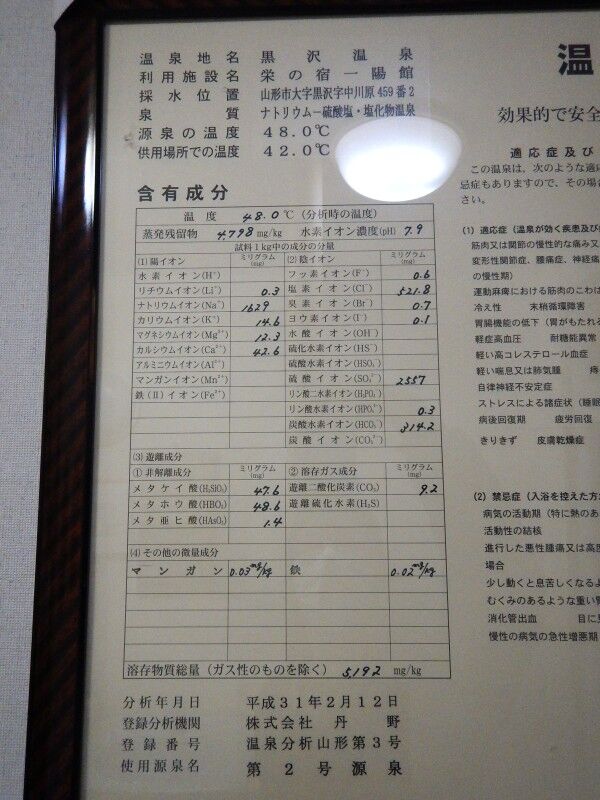 温泉地名 黒沢温泉
利用施設名 栄の宿一陽館
採水位置 山形市大字黒沢字中川原459番2
泉質 ナトリウム－硫酸塩・塩化物温泉
源泉の温度 48.0℃
供用場所での温度 42.0℃
含有成分
温度 48.0℃(分析時の温度)
蒸発残留物 4798 mg/kg 水素イオン濃度(pH) 7.9
試料1kg中の成分の分量
(1)陽イオン ミリグラム(mg) (2)陰イオン ミリグラム(mg)
水素イオン(H⁺) フッ素イオン(F⁻) 0.6
リチウムイオン(Li⁺) 0.3 塩素イオン(Cl⁻) 521.8
ナトリウムイオン(Na⁺) 1629 臭素イオン(Br⁻) 0.7
カリウムイオン(K⁺) 14.6 ヨウ素イオン(I⁻) 0.1
マグネシウムイオン(Mg²⁺) 12.3 水酸イオン(OH⁻)
カルシウムイオン(Ca²⁺) 42.6 硫化水素イオン(HS⁻)
アルミニウムイオン(Al³⁺) 硫酸水素イオン(HSO₄⁻)
マンガンイオン(Mn²⁺) 硫酸イオン(SO₄²⁻) 2557
鉄(Ⅱ)イオン(Fe²⁺) リン酸二水素イオン(H₂PO₄⁻)
リン酸水素イオン(HPO₄²⁻) 0.3
炭酸水素イオン(HCO₃⁻) 314.2
炭酸イオン(CO₃²⁻)
(3)遊離成分
①非解離成分 ミリグラム(mg) ②溶存ガス成分 ミリグラム(mg)
メタケイ酸(H₂SiO₃) 47.6 遊離二酸化炭素(CO₂) 9.2
メタホウ酸(HBO₂) 48.6 遊離硫化水素(H₂S)
メタ亜ヒ酸(HAsO₂) 1.4
(4)その他の微量成分
マンガン 0.03mg/kg 鉄 0.02mg/kg
溶存物質総量(ガス性のものを除く) 5192 mg/kg
分析年月日 平成31年2月12日
登録分析機関 株式会社 丹野
登録番号 温泉分析山形第3号
使用源泉名 第2号源泉
温
効果的で安全
適応症及び
この温泉は、次のような適応
忌症もありますので、その場合
さい。
(1) 適応症(温泉が効く疾患及び
筋肉又は関節の慢性的な痛み又
変形性関節症、腰痛症、神経痛
の慢性期)
運動麻痺における筋肉のこわば
冷え性 末梢循環障害
胃腸機能の低下(胃がもたれる
軽症高血圧 耐糖能異常
軽い高コレステロール血症
軽い喘息又は肺気腫 痔
自律神経不安定症
ストレスによる諸症状(睡眠
病後回復期 疲労回復
きりきず 皮膚乾燥症
(2) 禁忌症(入浴を控えた方
病気の活動期(特に熱のあ
活動性の結核
進行した悪性腫瘍又は高度
場合
少し動くと息苦しくなるよ
むくみのあるような重い腎
消化管出血 目に見
慢性の病気の急性増悪期